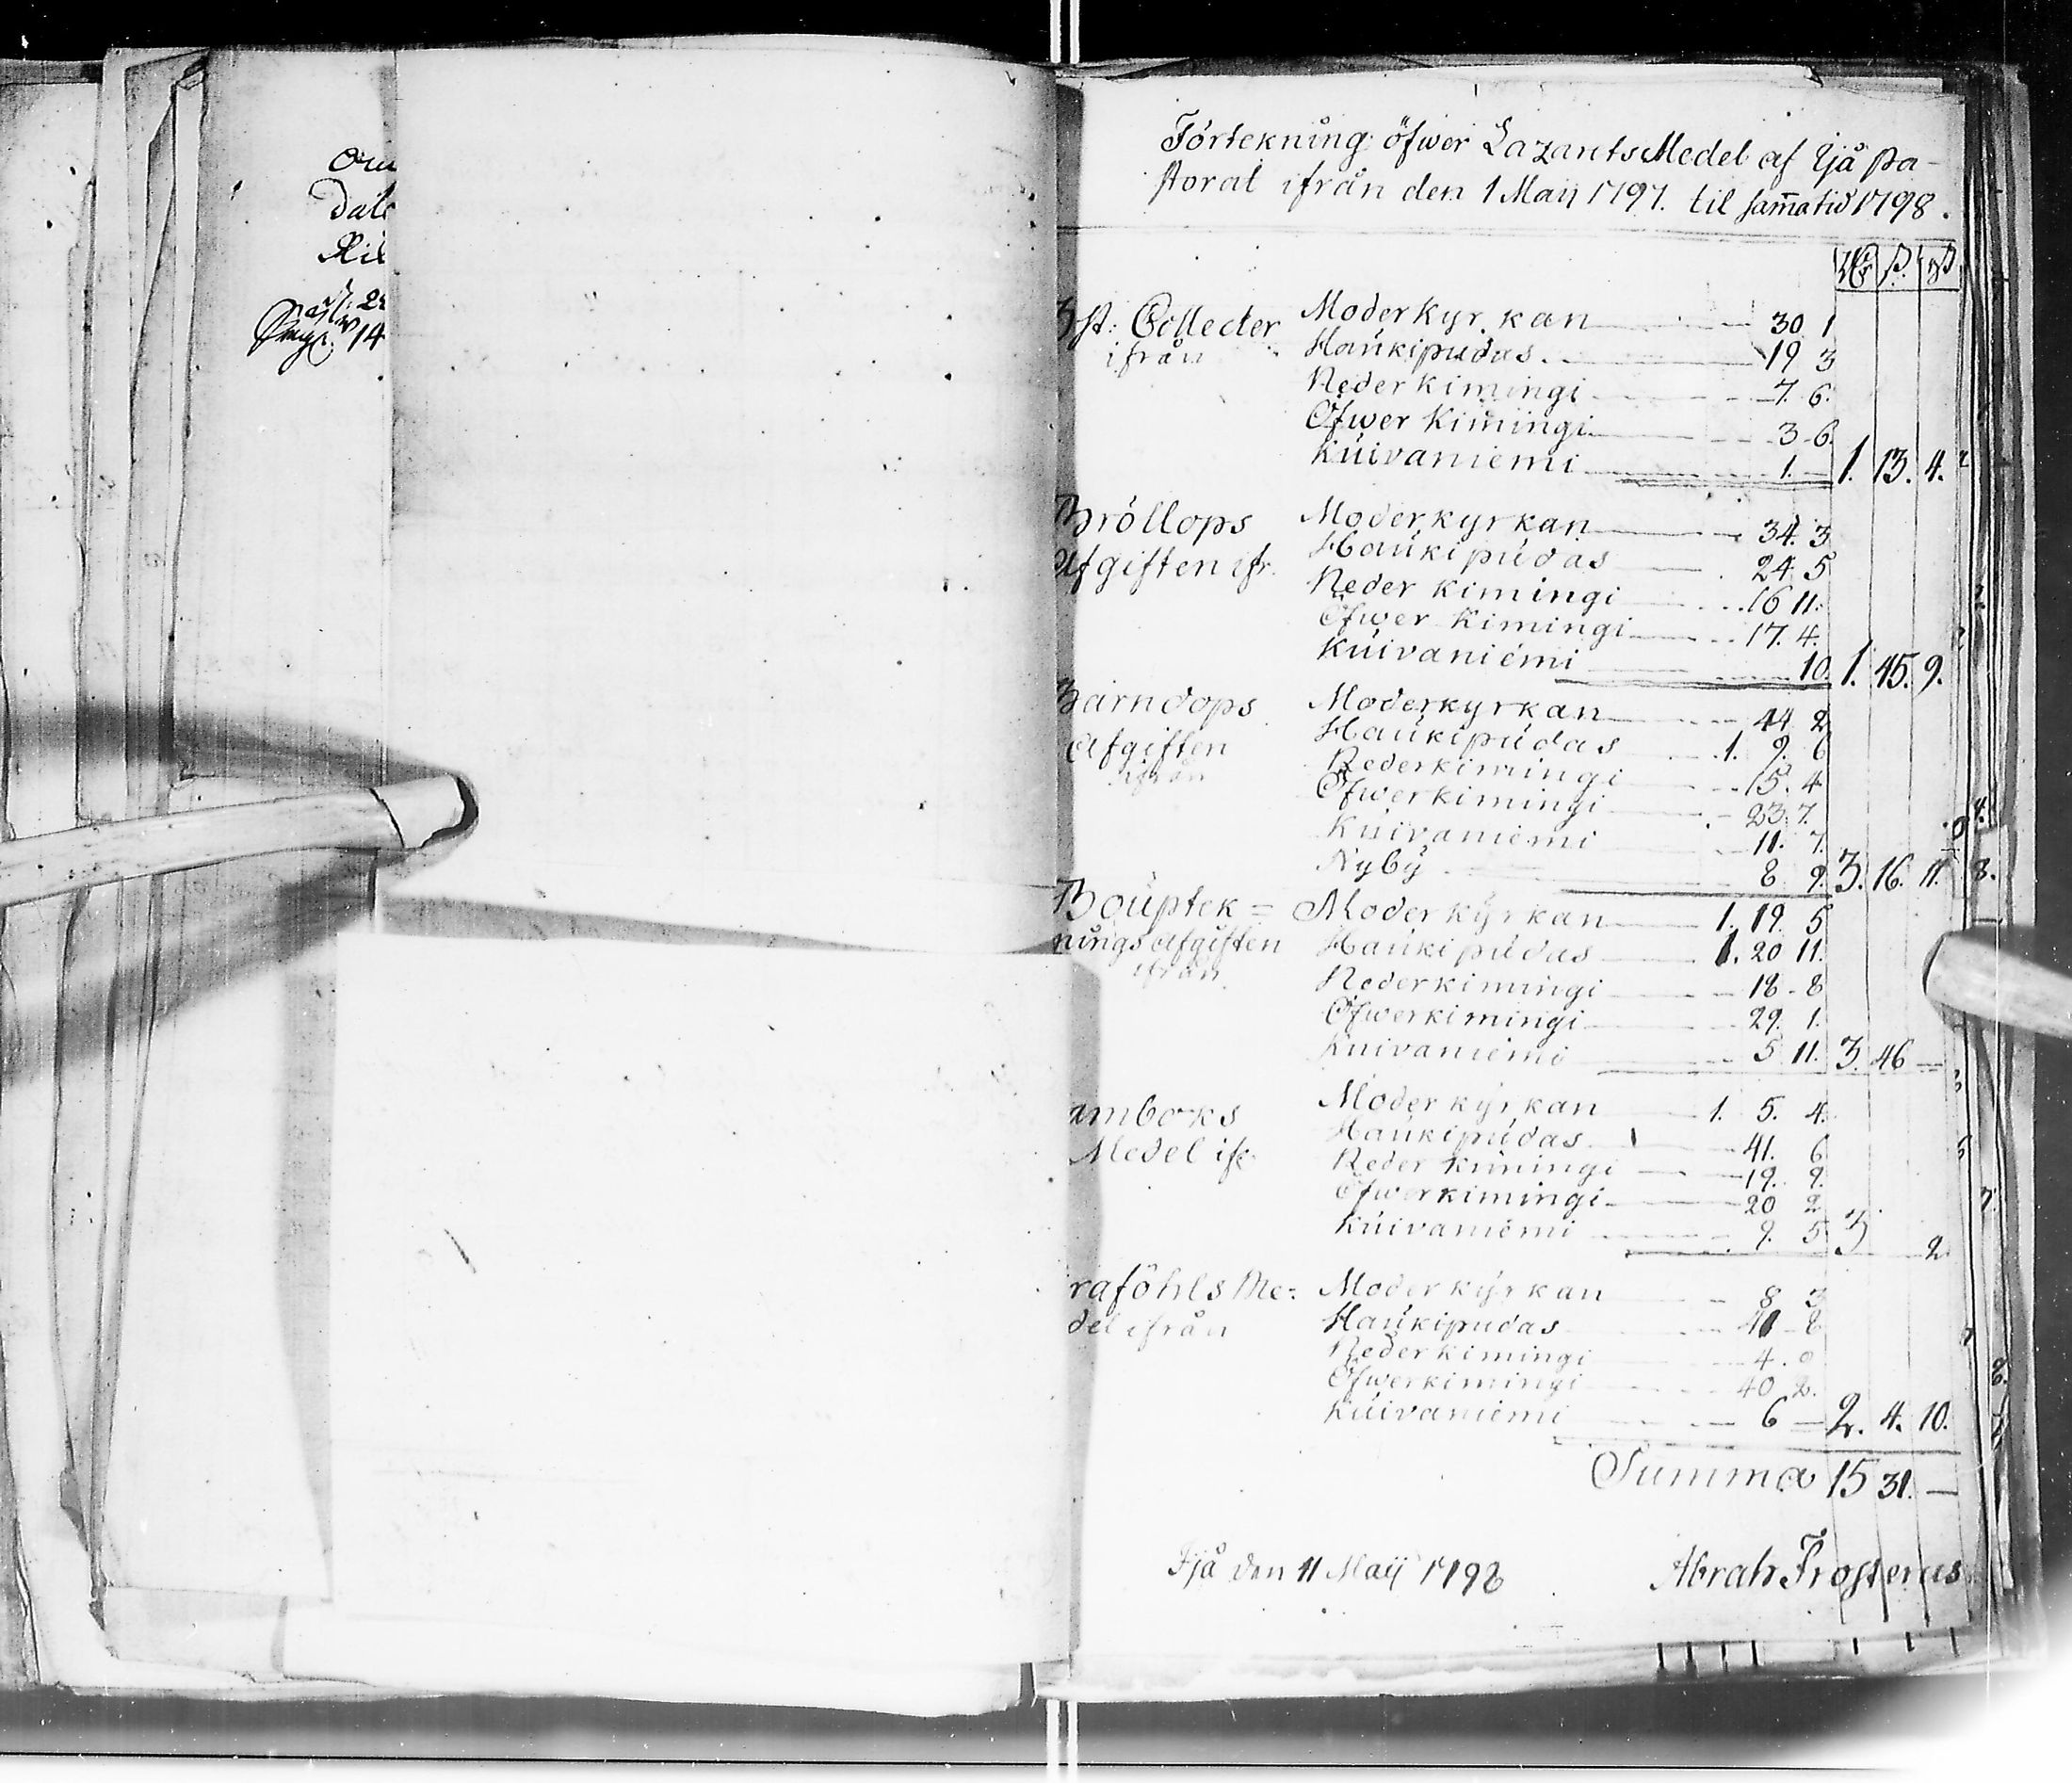 Förtekning öfwer LazaretsMedel af Ijå Pa-
storat ifrån den 1 Maij 1797. til samma tid 1798.
Collecter Moderkyrkan 30 1
ifrån Haukipudas. 19 3
Nederkimingi 7. 6.
Öfwer Kimingi 3 6.
Kuivaniemi 1. 1. 13. 4.
Bröllops Moderkyrkan 34. 3
Afgiften ifr. Haukipudas 24. 5
Neder kimingi 16 11.
Öfwer Kimingi 17. 4.
Kuivaniemi 10. 1. 45. 9.
Barndops Moderkyrkan 44 2
Afgiften Haukipudas 1. 9. 6
ifrån Nederkimingi 15. 4
Öfwerkimingi 23 7.
Kuivaniemi 11. 7.
Nyby 8 9. 3. 16. 11.
Bouptek= Moderkyrkan 1. 19. 5
nings Afgiften Haukipudas 1. 20 11.
ifrån Nederkimingi 18 8
Öfwerkimingi 29. 1.
Kuivaniemi 5 11. 3. 46 —
amboks Moderkyrkan 1. 5. 4.
Medel ifr Haukipudas 41. 6
Neder kimingi 19. 9.
Öfwerkimingi 20 2
Kuivaniemi 9. 5 3 2
raföhls Me= Moderkyrkan 8 3
del ifrån Haukipudas
Nederkimingi 4.
Öfwerkimingi 40 2.
Kuivaniemi 6 — 2. 4. 10.
Summa 15 31. —
Ijå den 11 Maij 1798 Abrah Frosterus